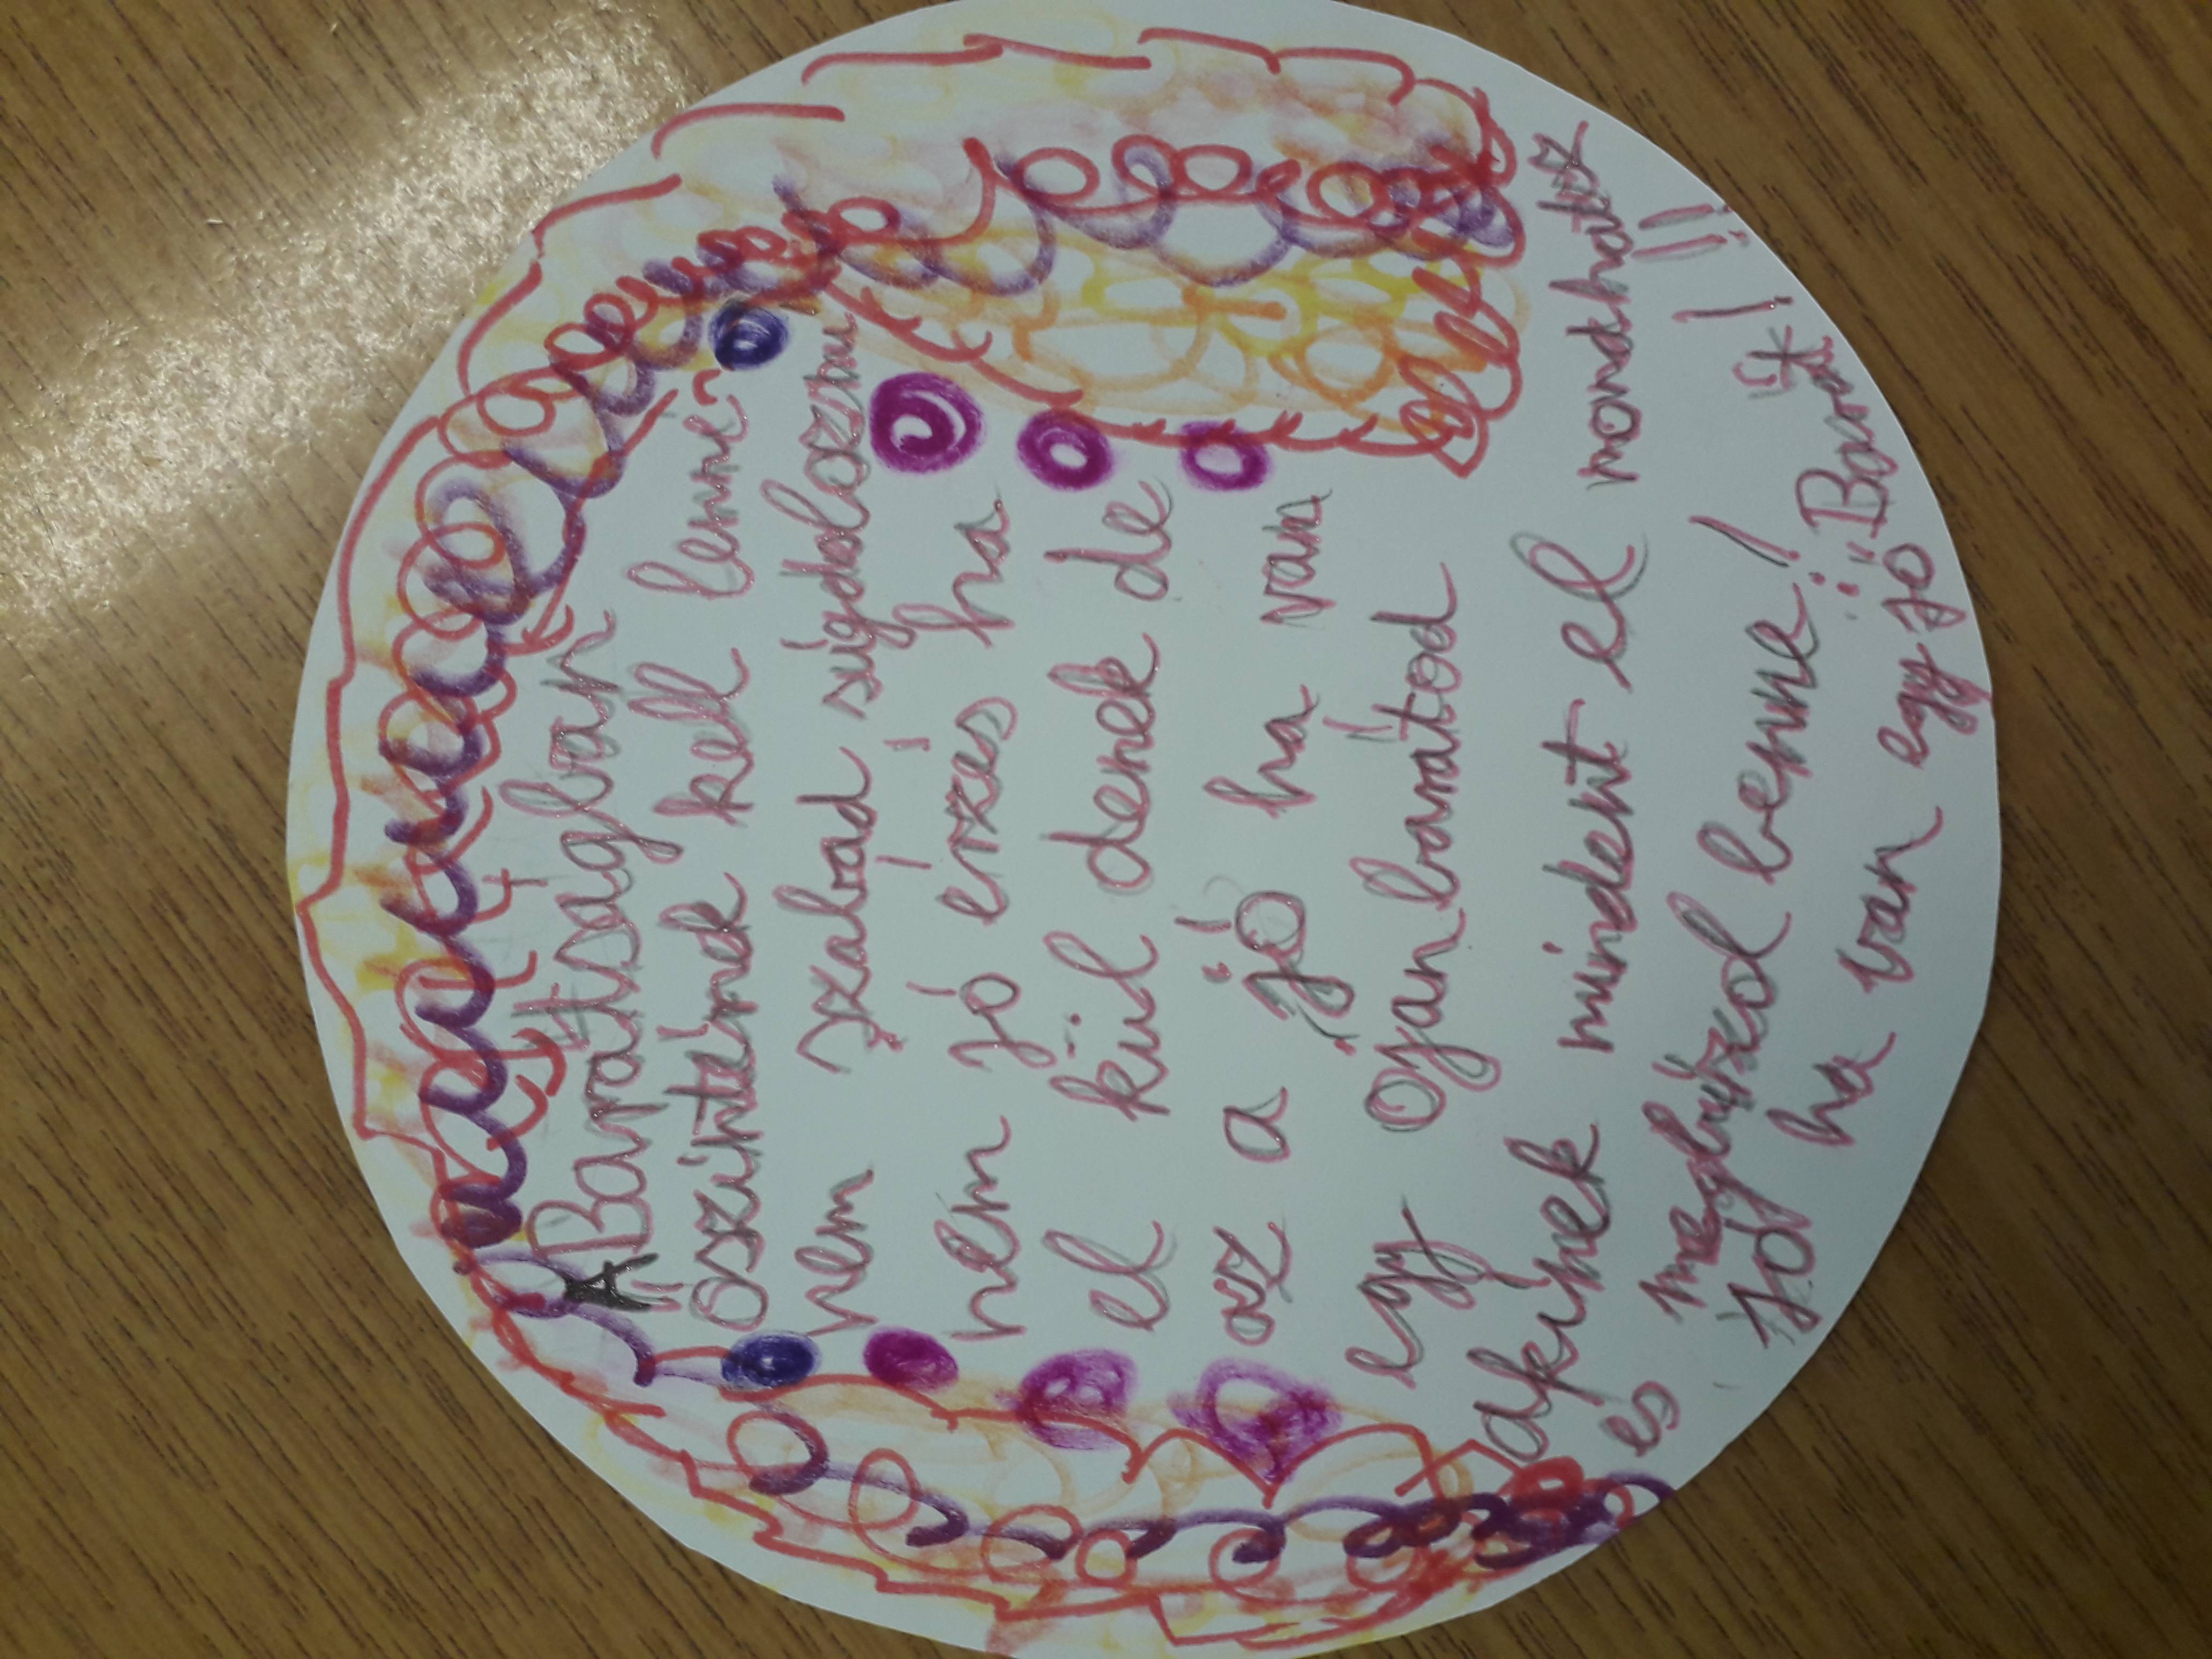 A Barátságban
őszinténk kell lenni
nem szabad súgdolozni
nem jó érzés ha
el kül denek de
az a jó ha van
egy ojan barátod
akinek mindent el mondhatsz
és megbízol benne! !!
jó ha van egy jó "Barát"!